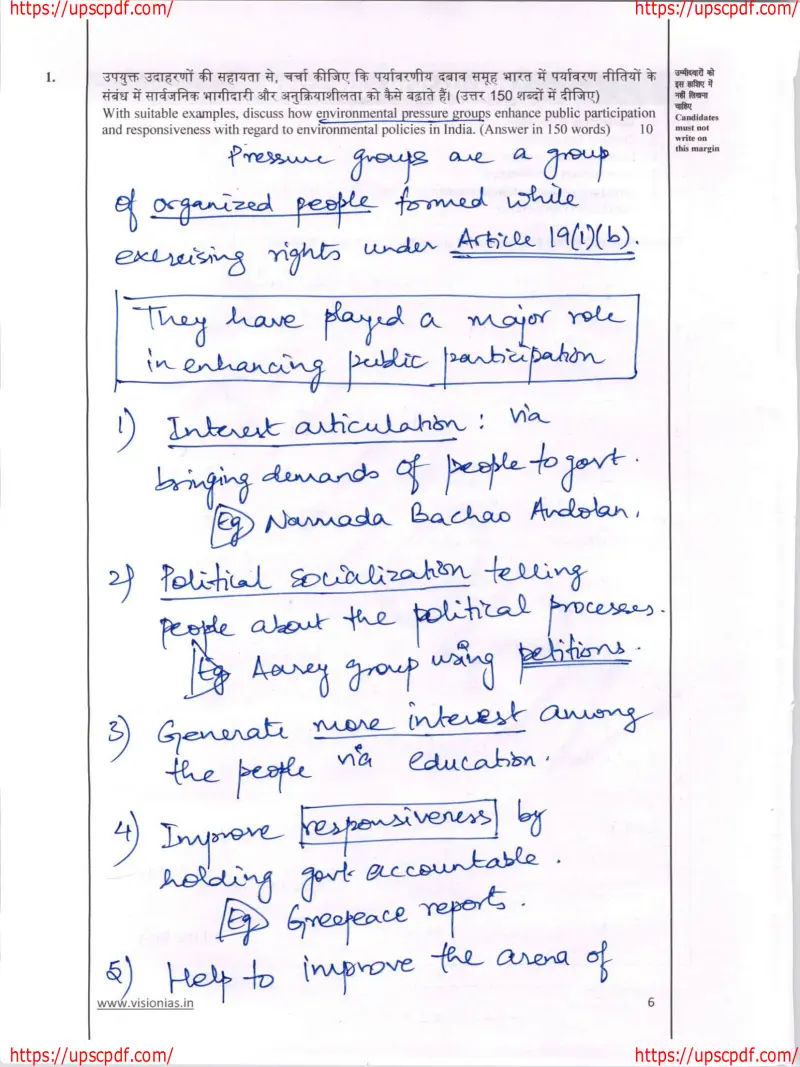 https://upscpdf.com/ https://upscpdf.com/
1.
उपयुक्त उदाहरणों की सहायता से, चर्चा कीजिए कि पर्यावरणीय दबाव समूह भारत में पर्यावरण नीतियों के
संबंध में सार्वजनिक भागीदारी और अनुक्रियाशीलता को कैसे बढ़ाते हैं। (उत्तर 150 शब्दों में दीजिए)
With suitable examples, discuss how environmental pressure groups enhance public participation
and responsiveness with regard to environmental policies in India. (Answer in 150 words) 10
उम्मीदवारों को
इस हाशिए में
नहीं लिखना
चाहिए
Candidates
must not
write on
this margin
Pressure groups are a group
of organized people formed while
exercising rights under Article 19(1)(b).
They have played a major role
in enhancing public participation
1) Interest articulation : via
bringing demands of people to govt.
Eg Narmada Bachao Andolan.
2) Political socialization telling
people about the political processes.
Eg Aarey group using petitions.
3) Generate more interest among
the people via education.
4) Improve responsiveness by
holding govt accountable.
Eg Greepeace reports.
5) Help to improve the arena of
www.visionias.in 6
https://upscpdf.com/ https://upscpdf.com/